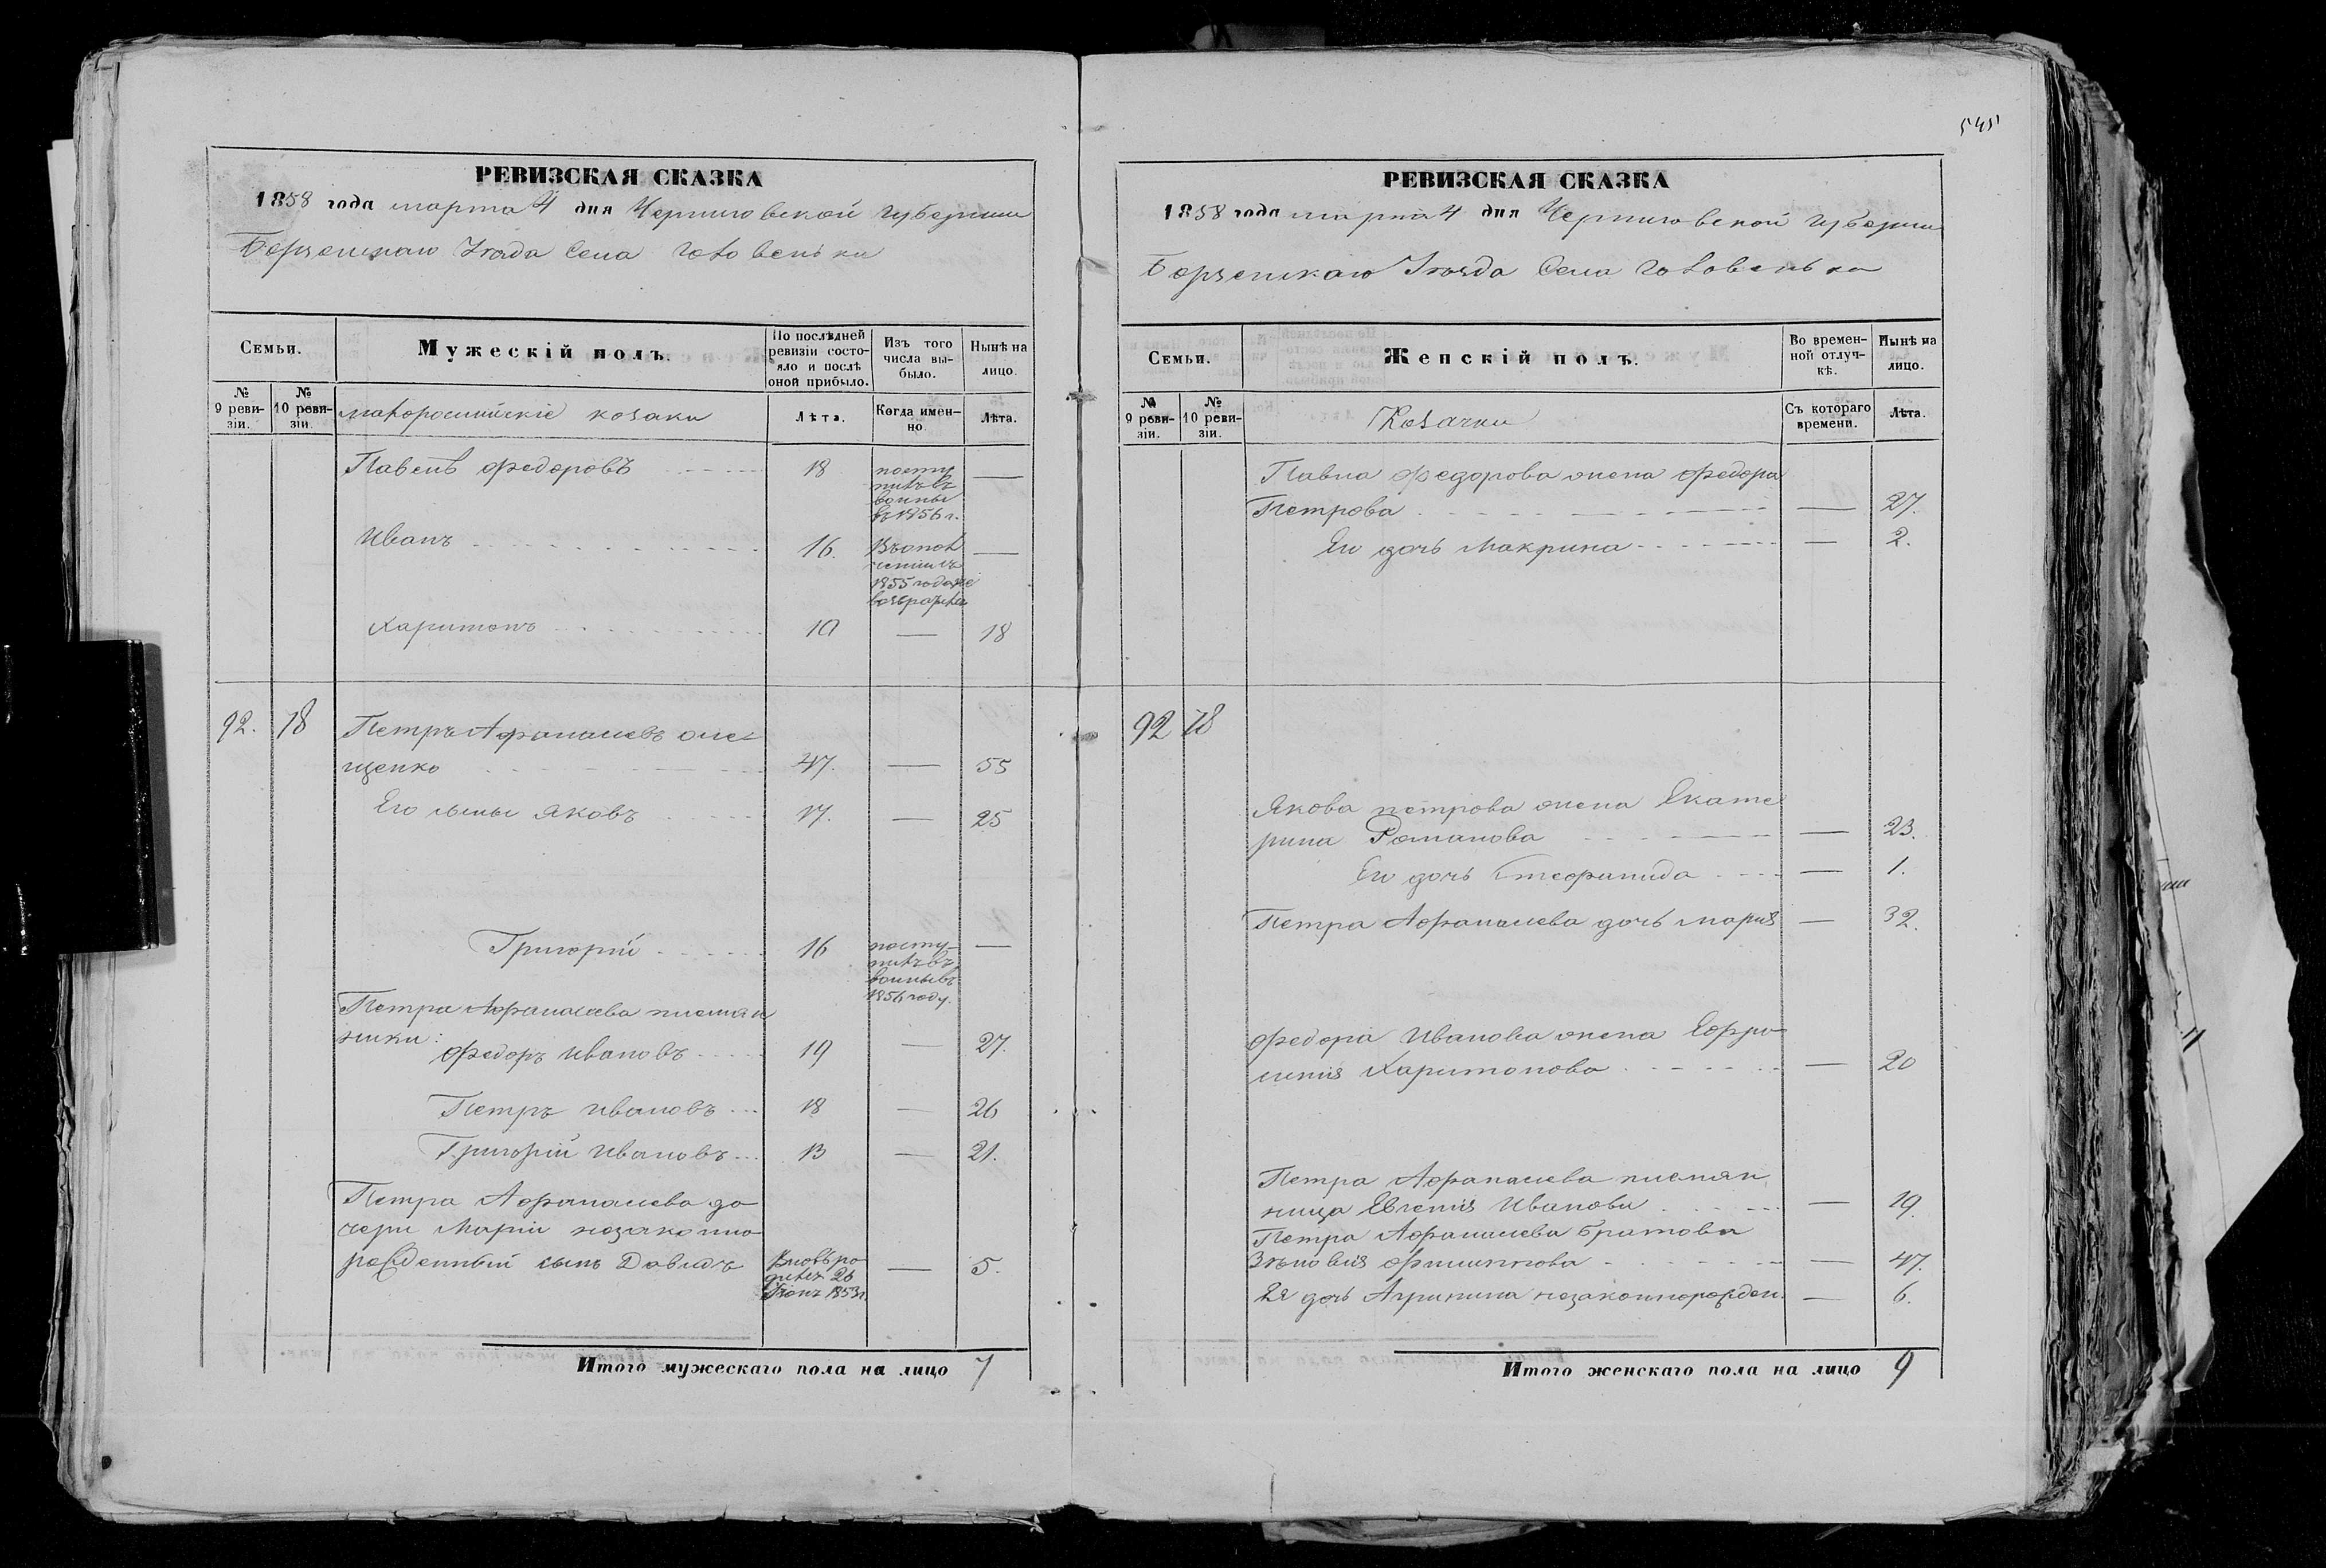 545
РЕВИЗСКАЯ СКАЗКА
1858 года марта 4 дня Черниговской губернии
Борзенскаго Уѣзда Села Головеньки
Семьи.
Мужескій полъ.
По послѣдней ревизіи состояло и послѣ оной прибыло.
Изъ того числа выбыло.
Нынѣ на лицо.
№ 9 ревизіи.
№ 10 ревизіи.
малоросійскіе козаки
Лѣта.
Когда именно.
Лѣта.
Павелъ Федоровъ 18 поступилъ въ воины въ 1856 г. —
Иванъ 16. В ополченіи съ 1855 года не возвратился —
Харитонъ 10 — 18
92. 18 Петръ Афанасіевъ Оме
щенко 47. — 55
Его сыны Яковъ 17. — 25
Григорій 16 поступилъ въ воины въ 1856 году. —
Петра Афанасіева племян
ники:
Федоръ Ивановъ 19 — 27.
Петръ Ивановъ 18 — 26
Григорій Ивановъ 13 — 21.
Петра Афанасіева до
чери Маріи незаконно
рожденный сынъ Давидъ Вновь родился 26 Іюня 1853 г. — 5.
Итого мужескаго пола на лицо 7
РЕВИЗСКАЯ СКАЗКА
1858 года марта 4 дня Черниговской губернии
Борзенскаго Уѣзда Села Головеньки
Семьи.
Женскій полъ.
Во временной отлучкѣ.
Нынѣ на лицо.
№ 9 ревизіи.
№ 10 ревизіи.
Козачки
Съ котораго времени.
Лѣта.
Павла Федорова жена Федора
Петрова — 27.
Его дочь Макрина — 2.
92 18
Якова Петрова жена Екате
рина Романова — 23.
Его дочь Стефанида — 1.
Петра Афанасіева дочь Марія — 32.
Федора Иванова жена Ефро
синія Харитонова — 20
Петра Афанасіева племян
ница Евгенія Иванова — 19.
Петра Афанасіева братова
Зѣновія Филиппова — 47.
Её дочь Агрипина незаконнорожден. — 6.
Итого женскаго пола на лицо 9